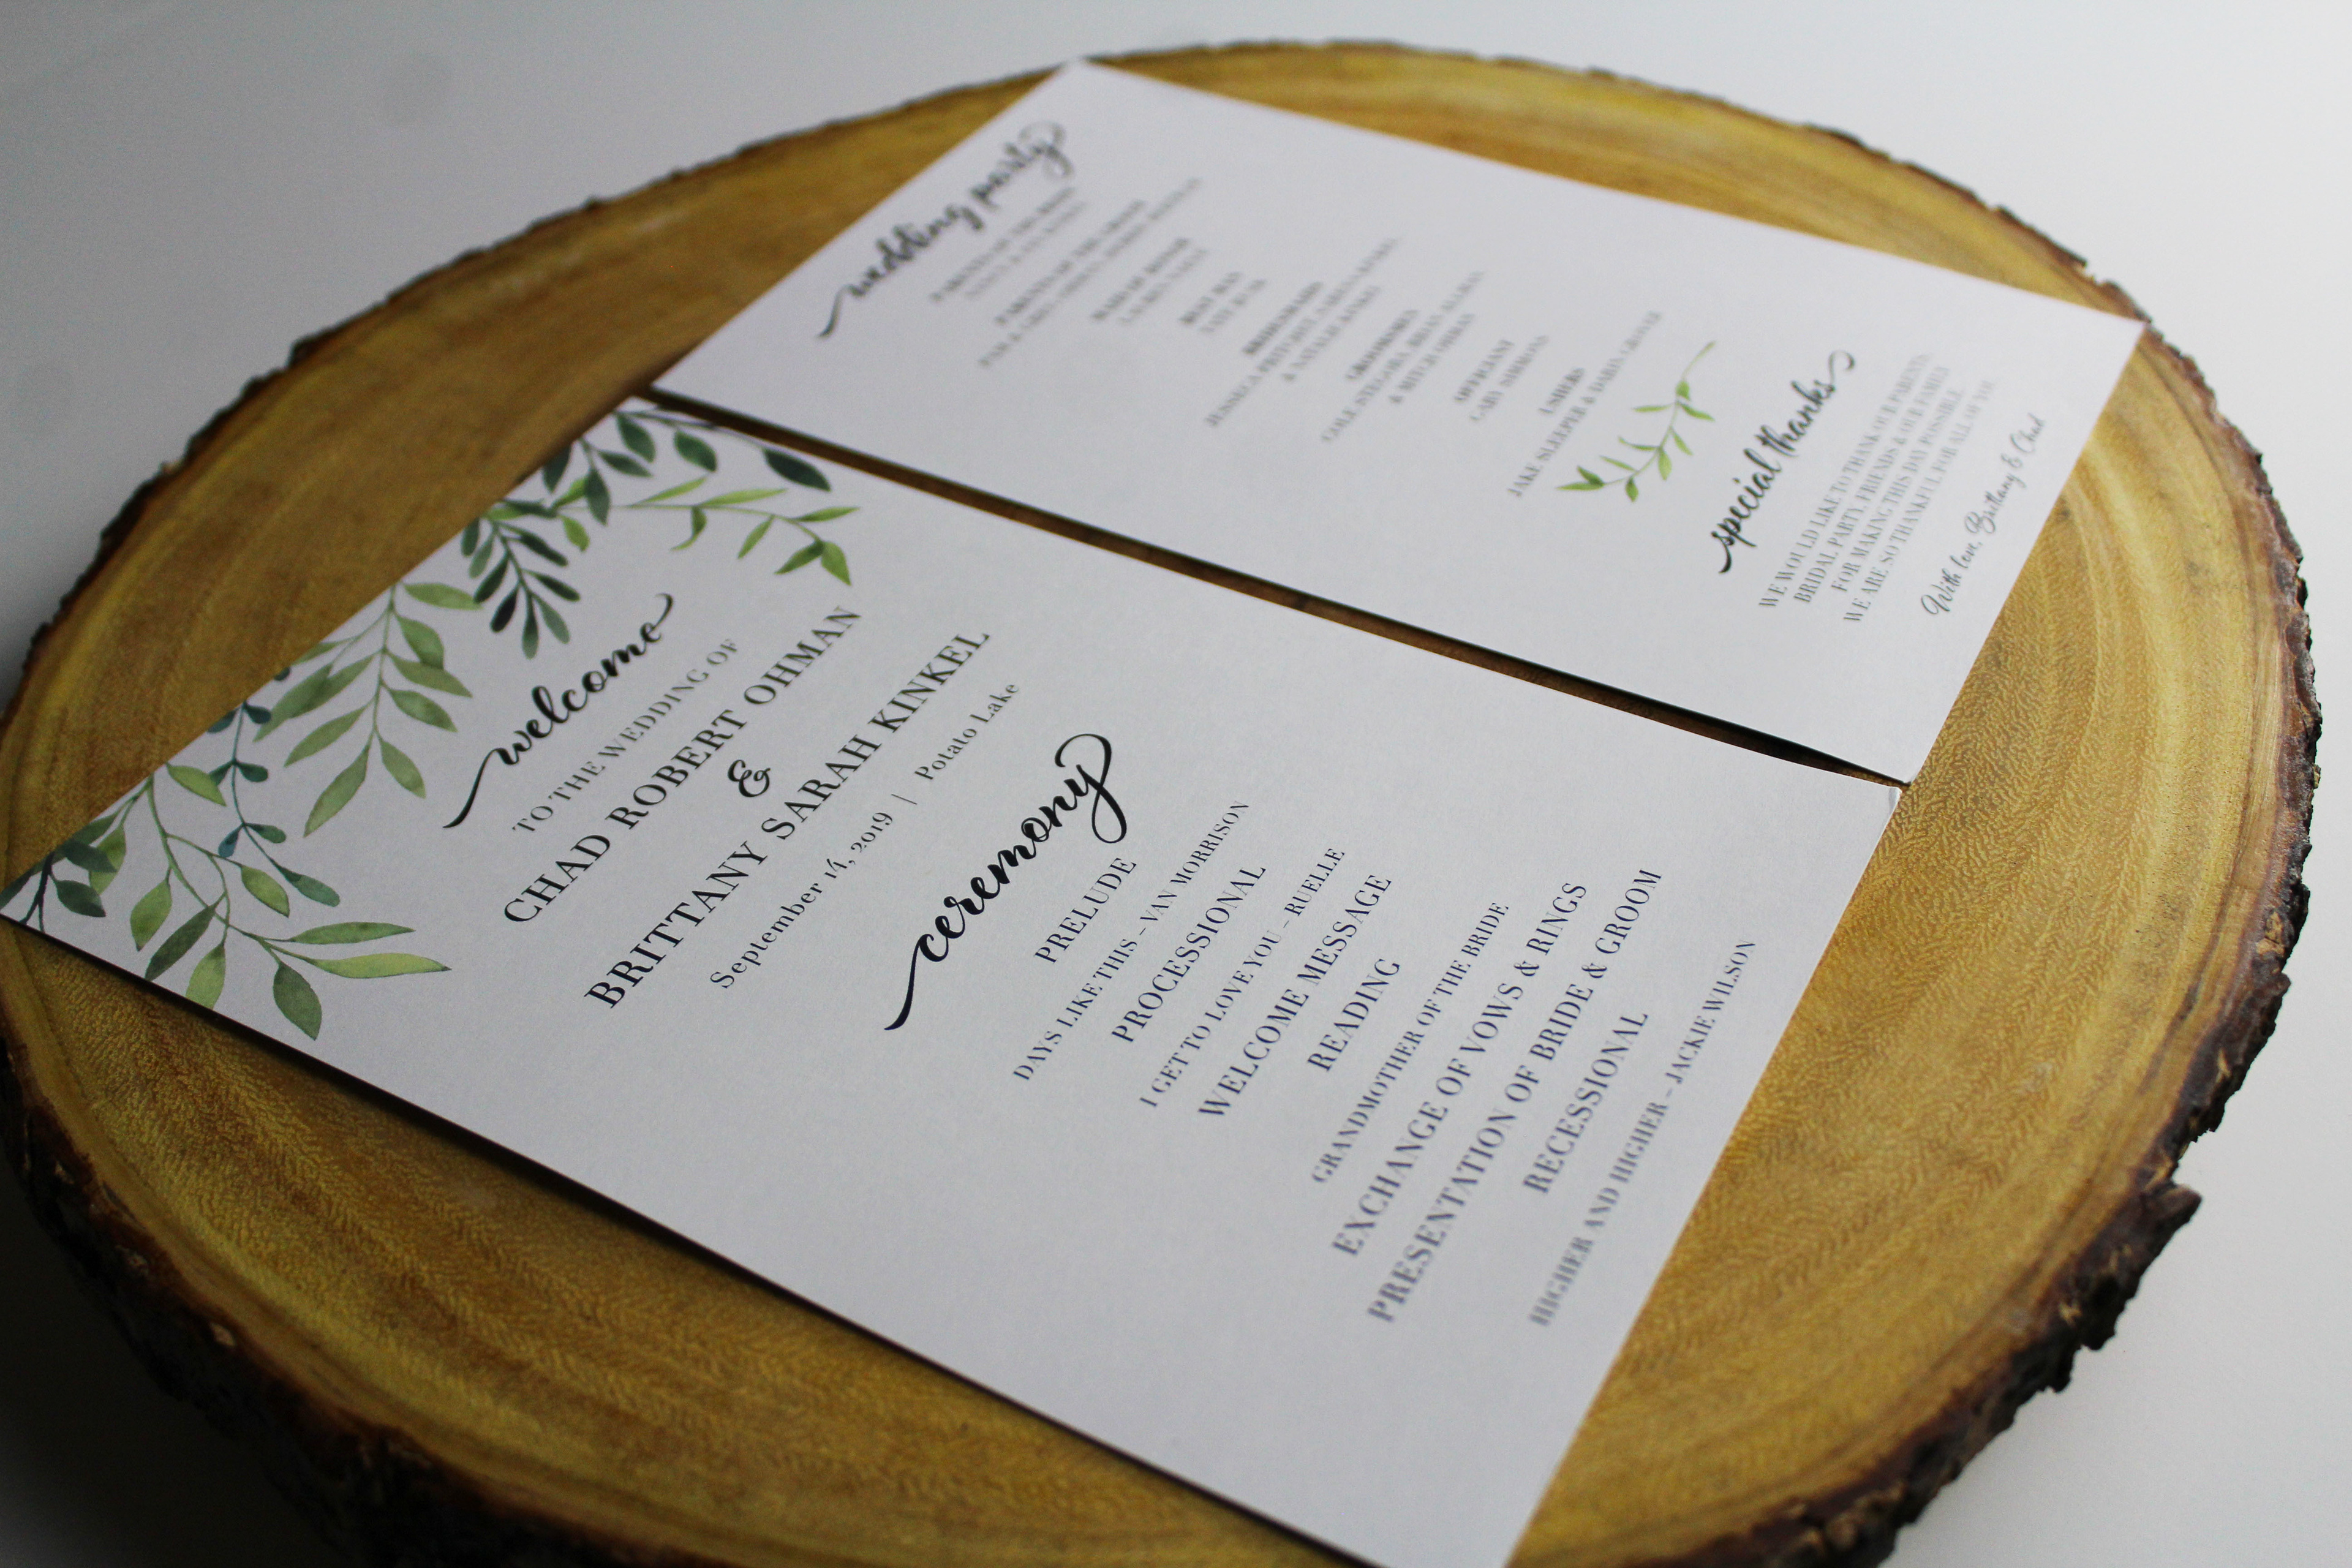 welcome
TO THE WEDDING OF
CHAD ROBERT OHMAN
&
BRITTANY SARAH KINKEL
September 14, 2019 | Potato Lake
ceremony
PRELUDE
DAYS LIKE THIS – VAN MORRISON
PROCESSIONAL
I GET TO LOVE YOU – RUELLE
WELCOME MESSAGE
READING
GRANDMOTHER OF THE BRIDE
EXCHANGE OF VOWS & RINGS
PRESENTATION OF BRIDE & GROOM
RECESSIONAL
HIGHER AND HIGHER – JACKIE WILSON
wedding party
PARENTS OF THE BRIDE
PARENTS OF THE GROOM
MAID OF HONOR
BEST MAN
BRIDESMAIDS
& NATALIE
GROOMSMEN
& MITCH
OFFICIANT
GARY SIMMONS
USHERS
JAKE SLEEPER & DARIN GRONLI
special thanks
WE WOULD LIKE TO THANK OUR PARENTS,
BRIDAL PARTY, FRIENDS & OUR FAMILY
FOR MAKING THIS DAY POSSIBLE.
WE ARE SO THANKFUL FOR ALL OF YOU.
With love, Brittany & Chad